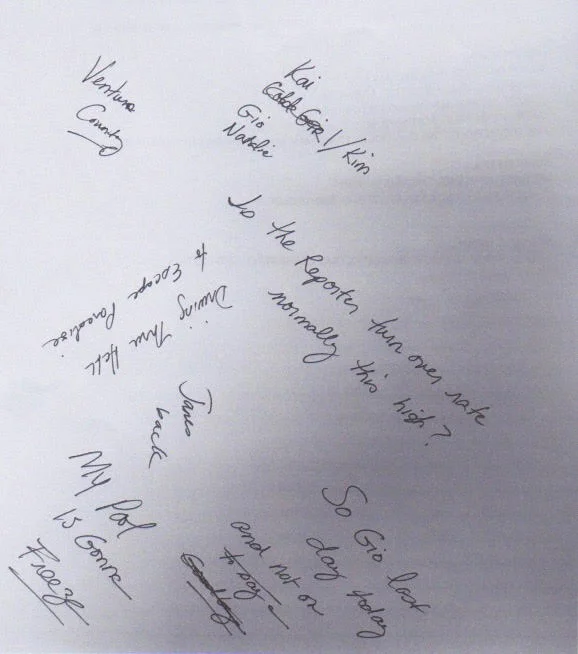 Ventura
County
Kai
Gio
Natalie
/Kim
Is the Reporter turn over rate
normally this high?
Driving Thru Hell
to Escape Paradise
Janes
back
My Pool
is Gonna
Freeze
So Gio last
day today
and not on
to say